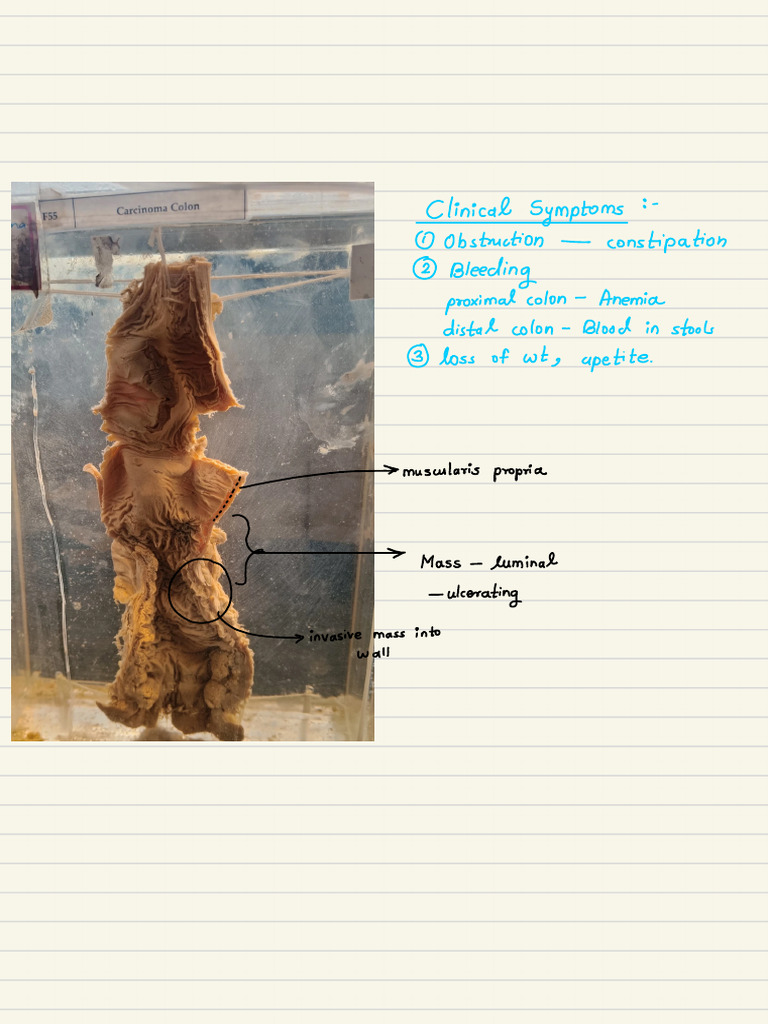 na
F55
Carcinoma Colon
Clinical Symptoms :-
① Obstruction — constipation
② Bleeding
proximal colon - Anemia
distal colon - Blood in stools
③ loss of wt, apetite.
muscularis propria
Mass - luminal
- ulcerating
invasive mass into
wall